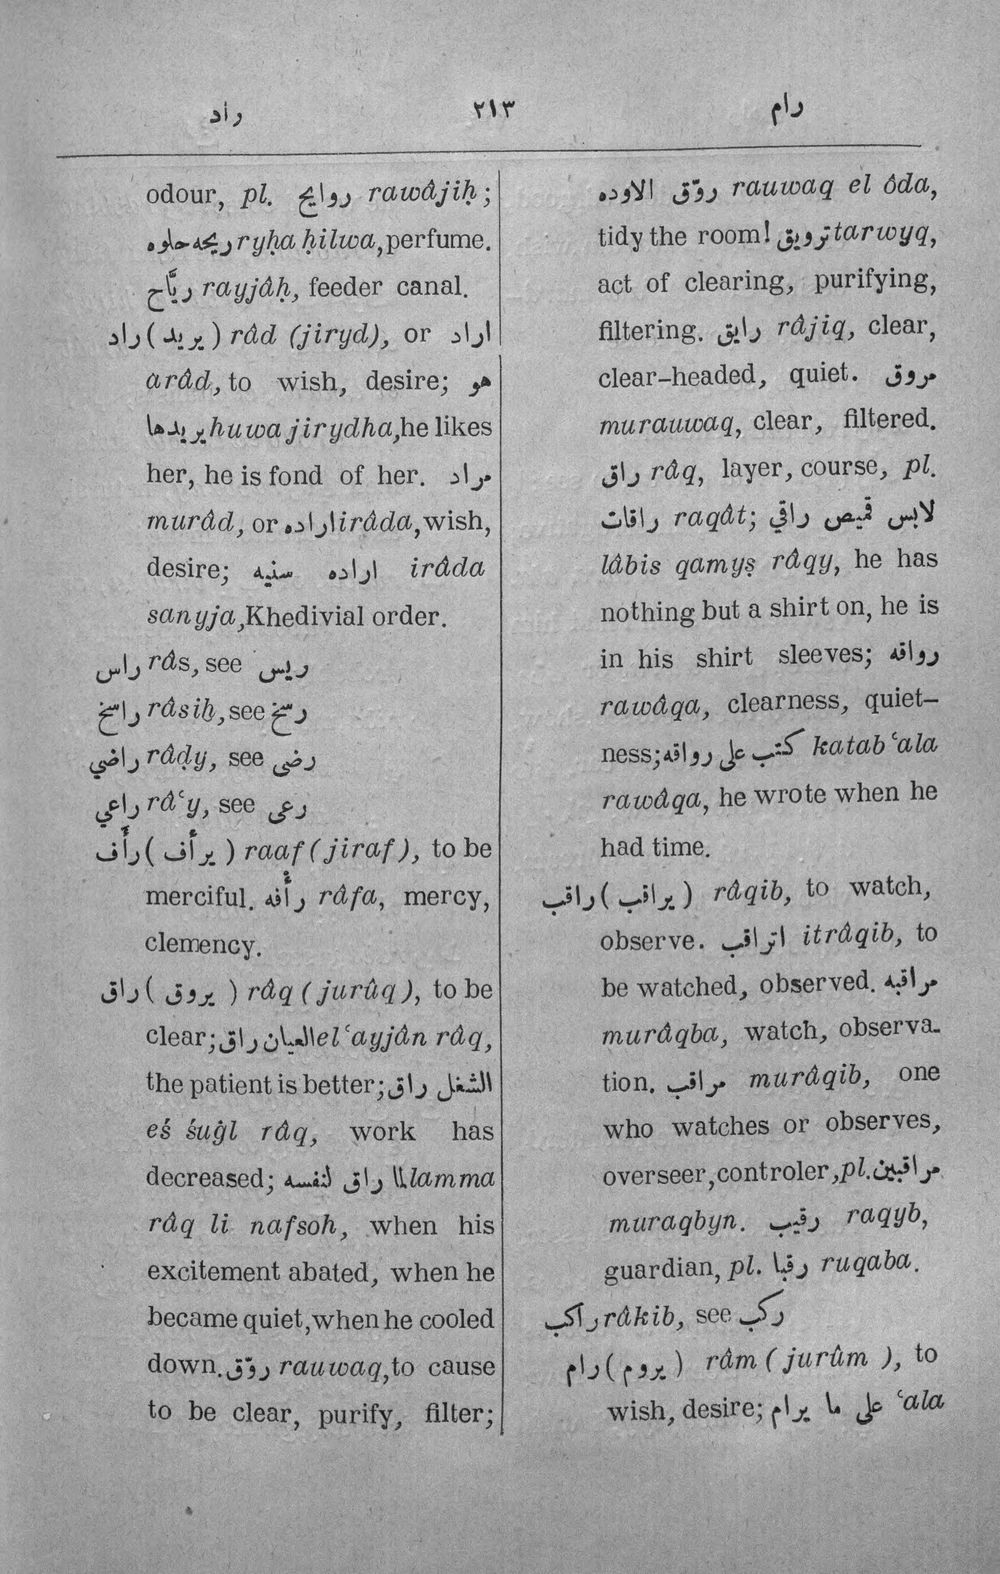 راد ٢١٣ رام
odour, pl. روايح rawâjiḥ;
ريحه حلوه ryḥa ḥilwa, perfume.
ريّاح rayjâḥ, feeder canal.
راد (يريد) râd (jiryd), or اراد
arâd, to wish, desire; هو
يريدها huwa jirydha, he likes
her, he is fond of her. مراد
murâd, or اراده irâda, wish,
desire; اراده سنيه irâda
sanyja, Khedivial order.
راس râs, see ريس
راسخ râsiḫ, see رسخ
راضي râḍy, see رضى
راعي râʿy, see رعى
رأف (يرأف) raaf (jiraf), to be
merciful. رأفه râfa, mercy,
clemency.
راق (يروق) râq (jurûq), to be
clear; العيان راق el ʿayjân râq,
the patient is better; الشغل راق
eś śuġl râq, work has
decreased; لما راق لنفسه lamma
râq li nafsoh, when his
excitement abated, when he
became quiet, when he cooled
down. روّق rauwaq, to cause
to be clear, purify, filter;
روّق الاوده rauwaq el ôda,
tidy the room! ترويق tarwyq,
act of clearing, purifying,
filtering. رايق râjiq, clear,
clear-headed, quiet. مروق
murauwaq, clear, filtered.
راق râq, layer, course, pl.
راقات raqât; لابس قميص راقي
lâbis qamyṣ râqy, he has
nothing but a shirt on, he is
in his shirt sleeves; رواقه
rawâqa, clearness, quiet-
ness; كتب على رواقه katab ʿala
rawâqa, he wrote when he
had time.
راقب (يراقب) râqib, to watch,
observe. اتراقب itrâqib, to
be watched, observed. مراقبه
murâqba, watch, observa-
tion. مراقب murâqib, one
who watches or observes,
overseer, controler, pl. مراقبين
muraqbyn. رقيب raqyb,
guardian, pl. رقبا ruqaba.
راكب râkib, see ركب
رام (يروم) râm (jurûm), to
wish, desire; على ما يرام ʿala